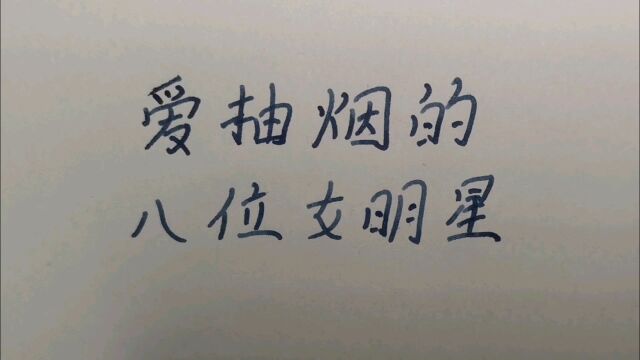 爱抽烟的
八位女明星